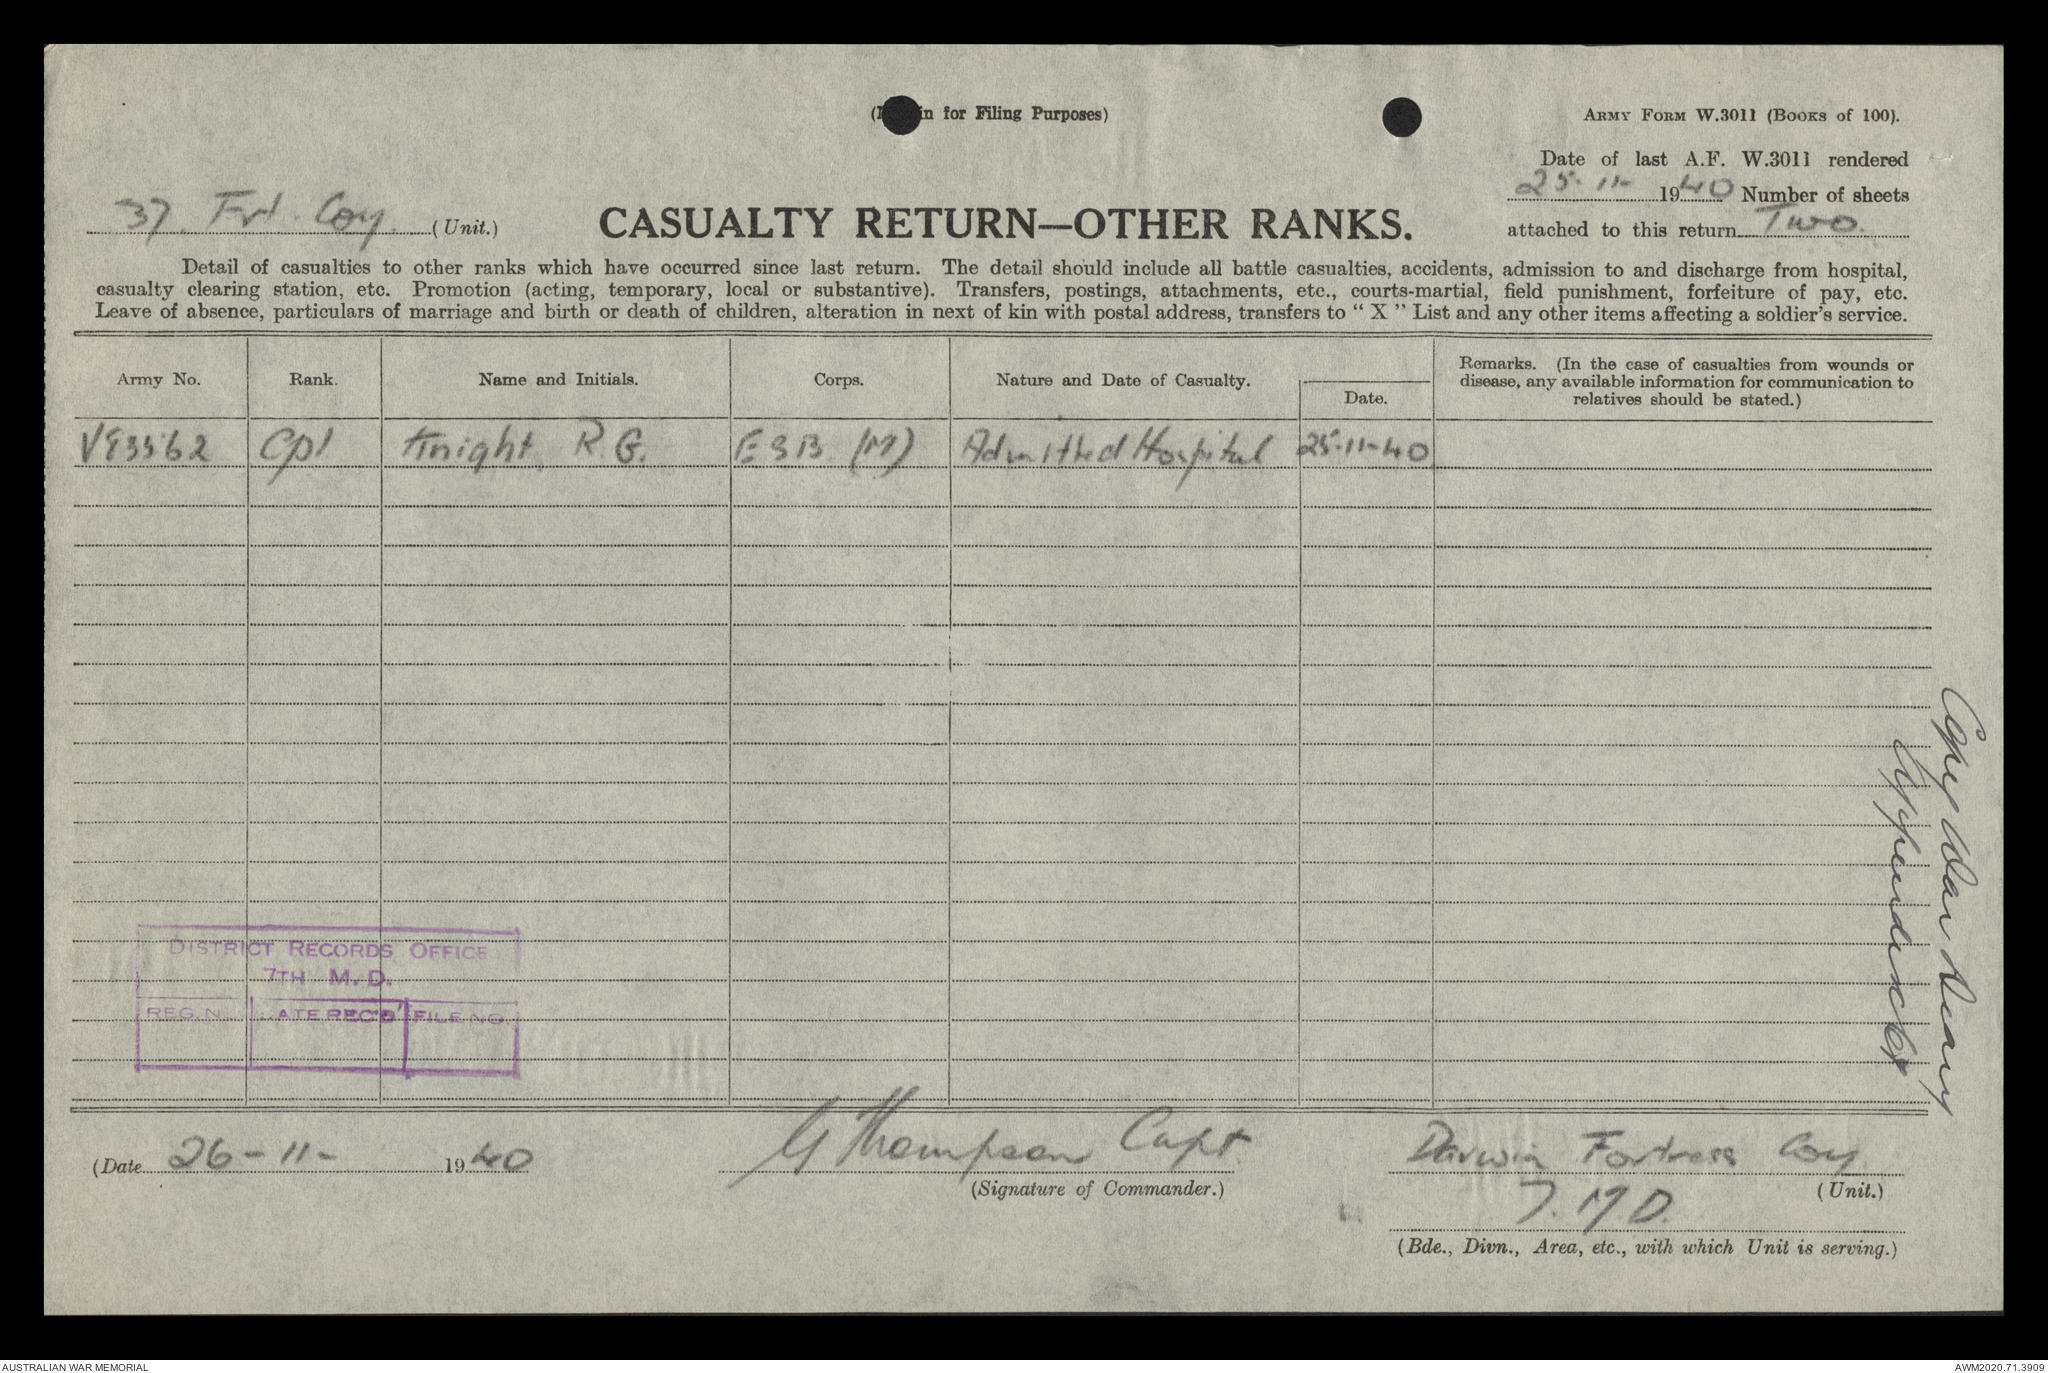 in for Filing Purposes)
ARMY FORM W.3011 (BOOKS of 100).
Date of last A.F. W.3011 rendered
25-11- 1940 Number of sheets
attached to this return Two.
37. Frt. Coy. (Unit.)
CASUALTY RETURN—OTHER RANKS.
Detail of casualties to other ranks which have occurred since last return. The detail should include all battle casualties, accidents, admission to and discharge from hospital,
casualty clearing station, etc. Promotion (acting, temporary, local or substantive). Transfers, postings, attachments, etc., courts-martial, field punishment, forfeiture of pay, etc.
Leave of absence, particulars of marriage and birth or death of children, alteration in next of kin with postal address, transfers to " X " List and any other items affecting a soldier's service.
Army No. Rank. Name and Initials. Corps. Nature and Date of Casualty. Date. Remarks. (In the case of casualties from wounds or
disease, any available information for communication to
relatives should be stated.)
Cpl Knight, R. G. (M) Admitted Hospital 25-11-40
Copy War Diary
Appendix
DISTRICT RECORDS OFFICE
7TH M. D.
REG. N ATE REC'D FILE NO.
(Date 26-11- 1940
G Thompson Capt
(Signature of Commander.)
Darwin Fortress Coy
(Unit.)
7. M. D.
(Bde., Divn., Area, etc., with which Unit is serving.)
AUSTRALIAN WAR MEMORIAL
AWM2020.71.3909